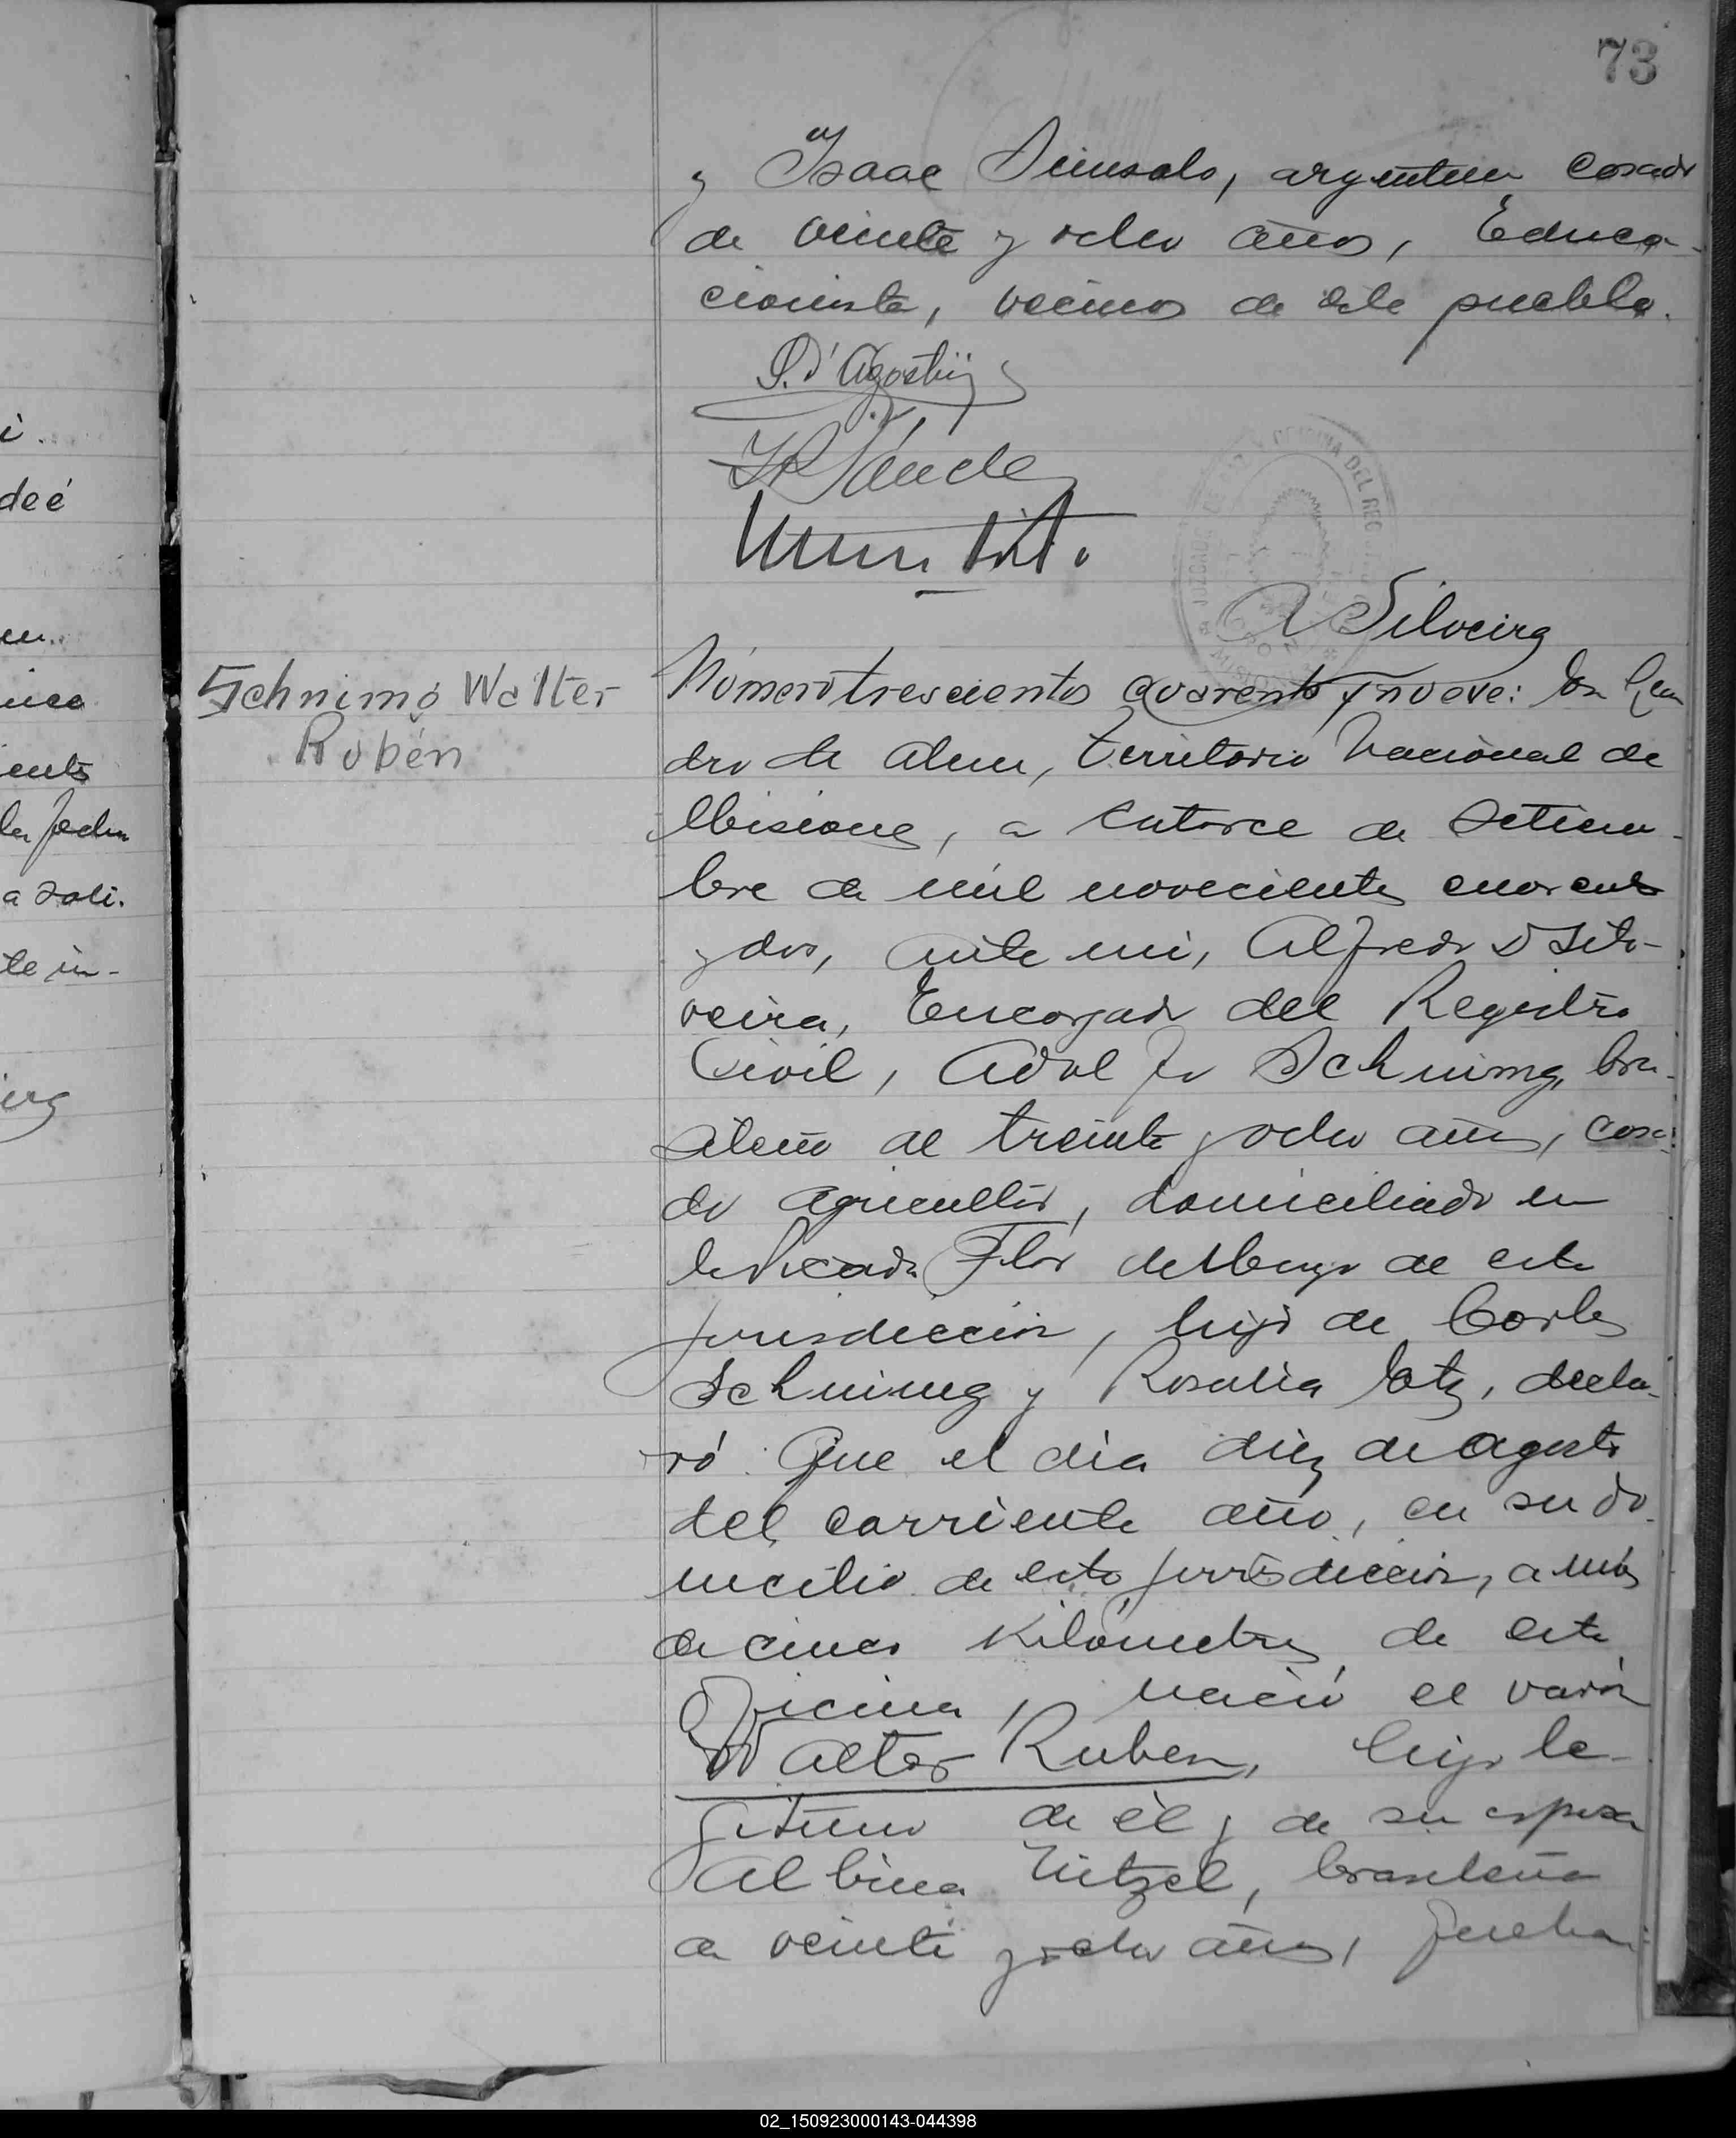 73
y Isaac , argentino casado
de veinte y ocho años, Educa-
cionista, vecinos de este pueblo.
P. D'Agostini
A Silveira
Schnimg Walter
Rubén
Número trescientos cuarenta y nueve: En Lean
dro N. Alem, Territorio Nacional de
Misiones, a catorce de Setiem-
bre de mil novecientos cuarenta
y dos, ante mi, Alfredo D Sil-
veira, Encargado del Registro
Civil, Adolfo Schnimg, bra-
sileño de treinta y ocho años, casa-
do agricultor, domiciliado en
la Picada Flor de Mayo de esta
jurisdicción, hijo de Carlos
Schnimg y Rosalia , decla-
ró: Que el día diez de agosto
del corriente año, en su do-
micilio de esta jurisdicción, a más
de cinco kilómetros de esta
Oficina, nació el varón
Walter Ruben, hijo le-
gitimo de él y de su esposa
Albina , brasileña
de veinte y ocho años,
02_150923000143-044398